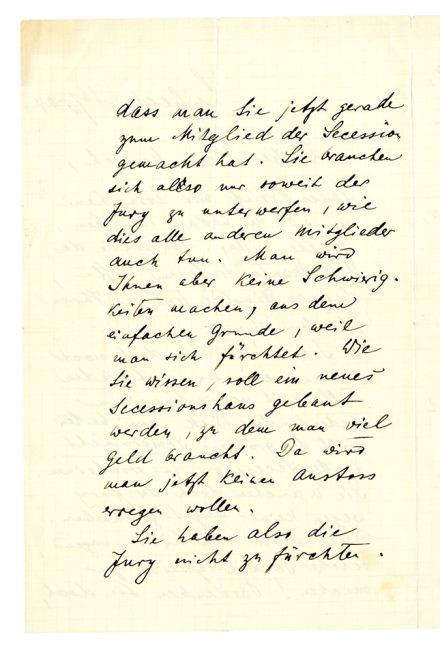 dass man Sie jetzt gerade
zum Mitglied der Secession
gemacht hat. Sie brauchen
sich also nur soweit der
Jury zu unterwerfen, wie
dies alle anderen Mitglieder
auch tun. Man wird
Ihnen aber keine Schwierig-
keiten machen, aus dem
einfachen Grunde, weil
man sich fürchtet. Wie
Sie wissen, soll ein neues
Secessionshaus gebaut
werden, zu dem man viel
Geld braucht. Da wird
man jetzt keinen Anstoss
erregen wollen.
Sie haben also die
Jury nicht zu fürchten.